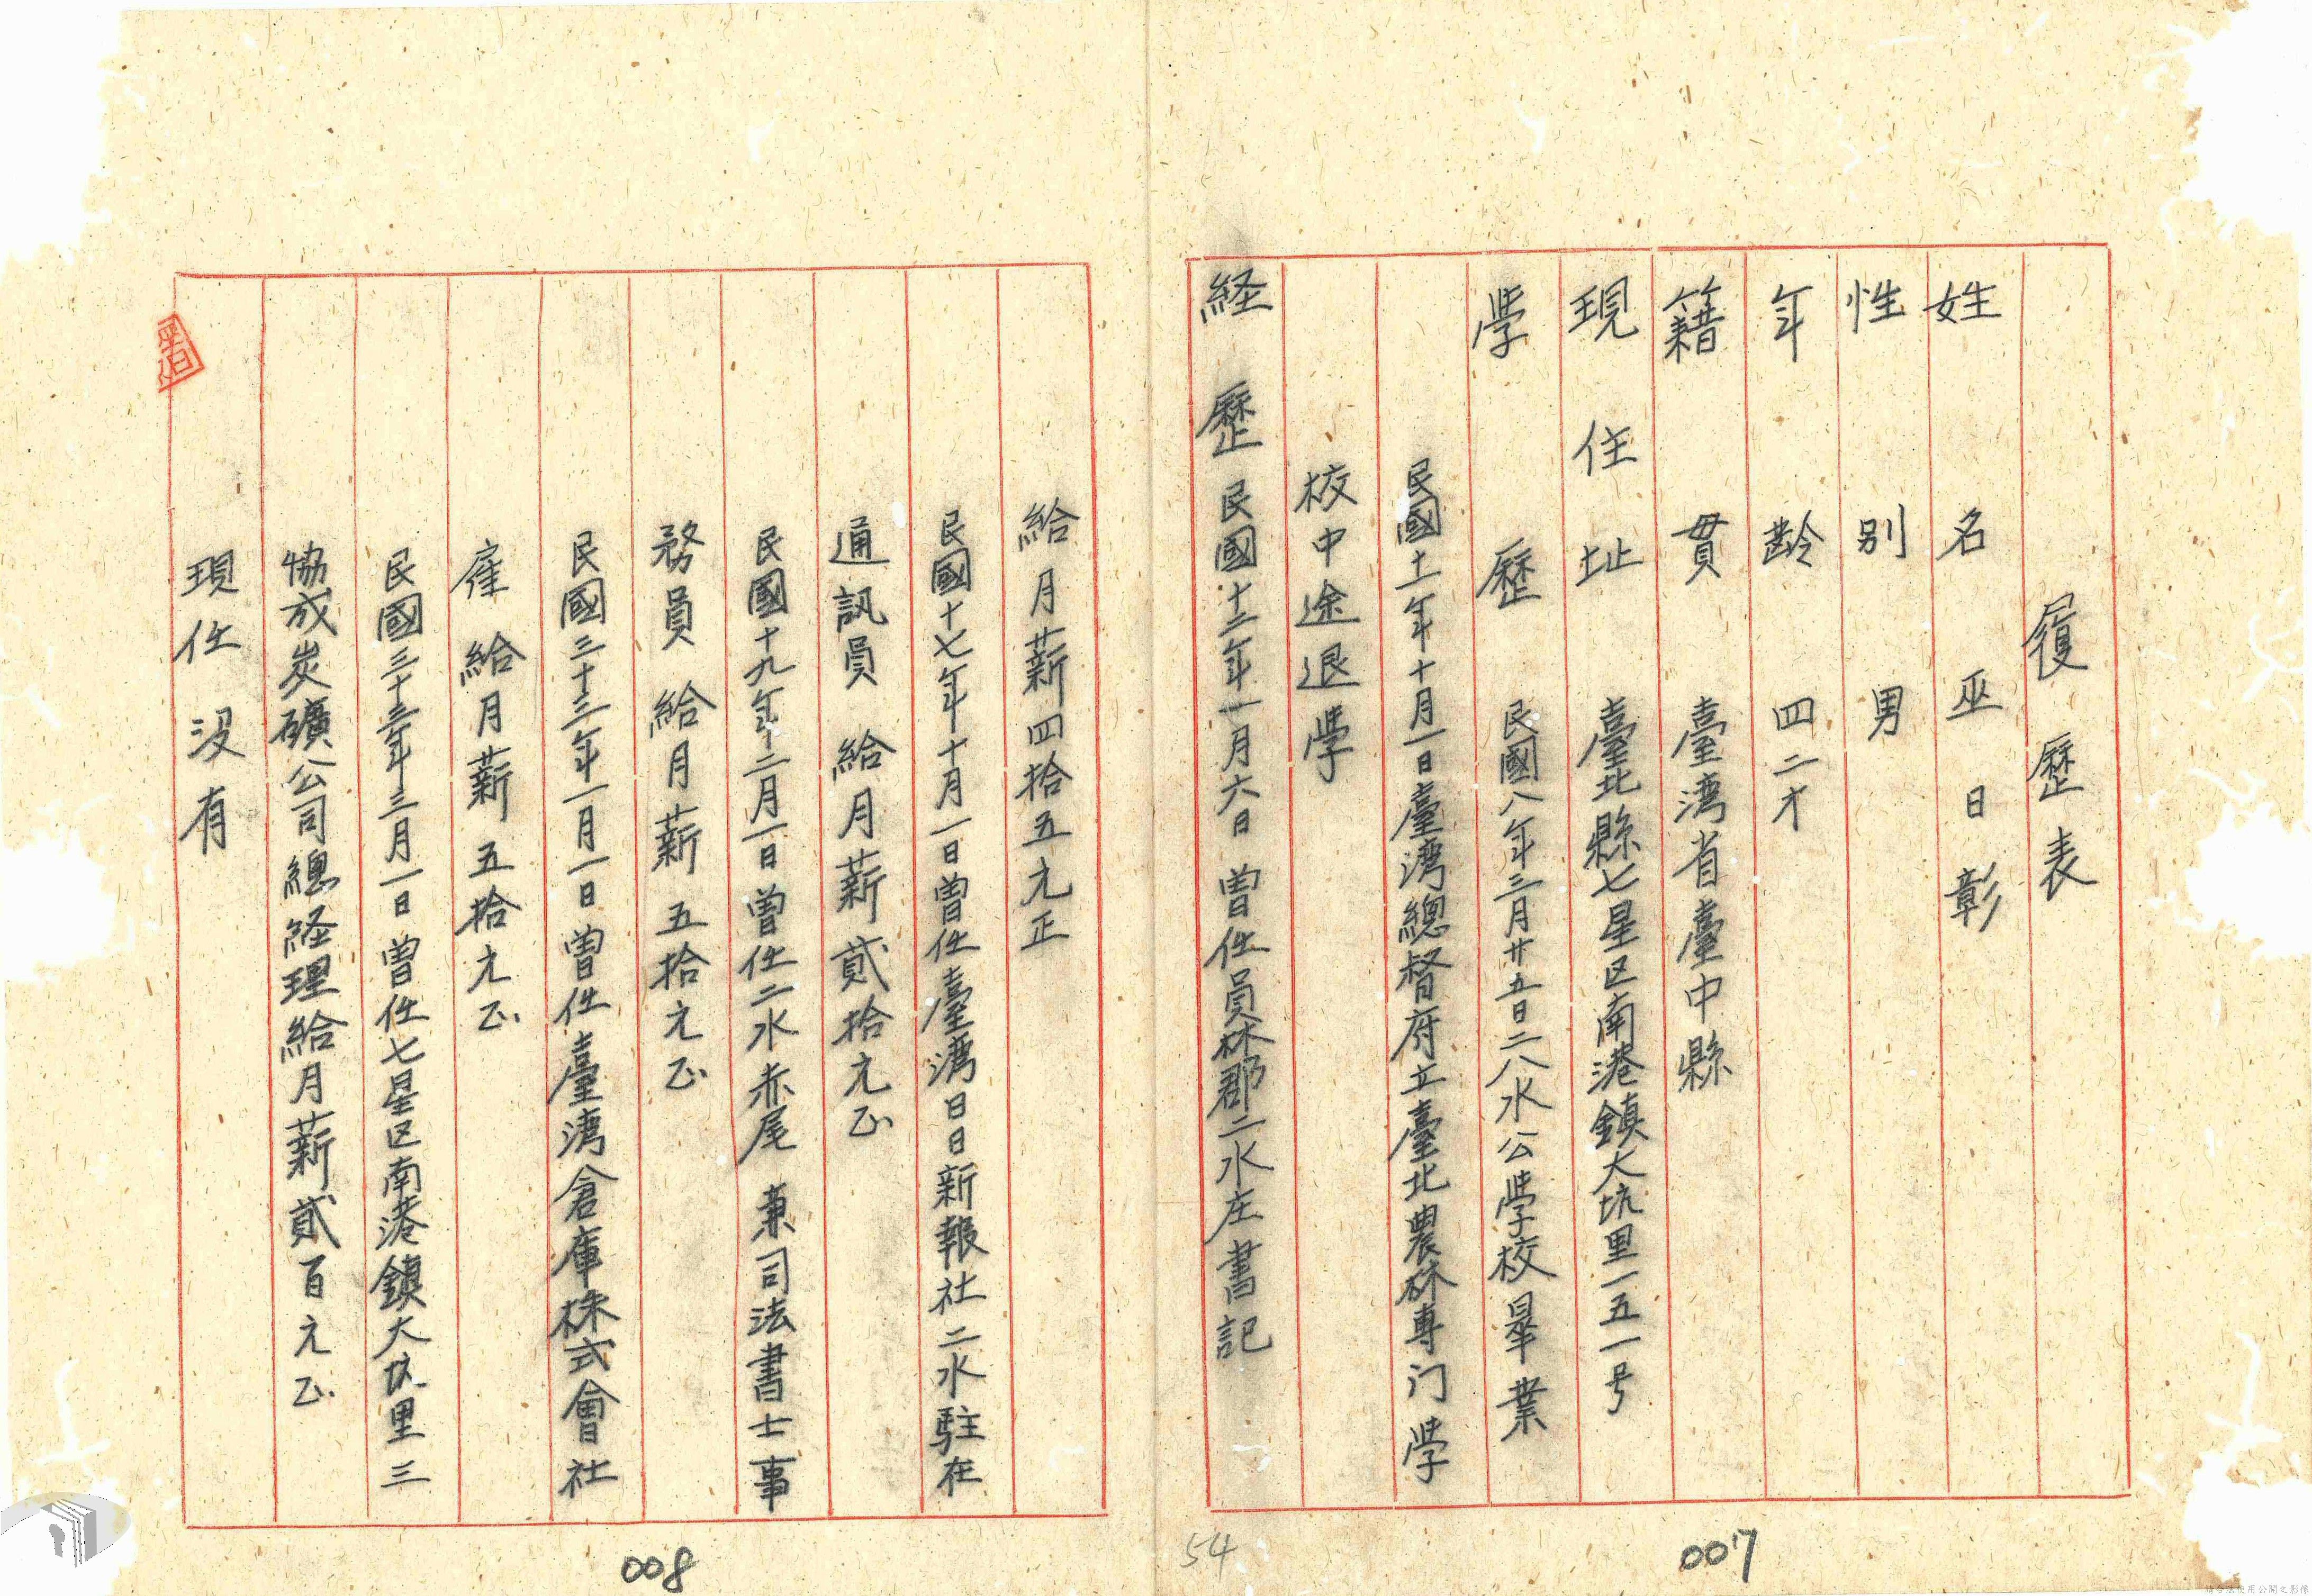 履歷表
姓名 巫日彰
性別 男
年齡 四二才
籍貫 臺湾省臺中縣
現住址 臺北縣七星区南港鎮大坑里一五一号
學歷 民國八年三月廿五日二八水公學校畢業
民國十一年十月一日臺湾總督府立臺北農林専门學
校中途退學
経歷 民國十二年一月六日曽任員林郡二水庄書記
給月薪四拾五元正
民國十七年十月一日曽任臺湾日日新報社二水駐在
通訊員 給月薪貳拾元正
民國十九年二月一日曽任二水赤尾 兼司法書士事
務員 給月薪五拾元正
民國三十二年一月一日曽任臺湾倉庫株式會社
雇 給月薪五拾元正
民國三十三年三月一日曽任七星区南港鎮大坑里三
協成炭礦公司總経理給月薪貳百元正
現任没有
007
54
008